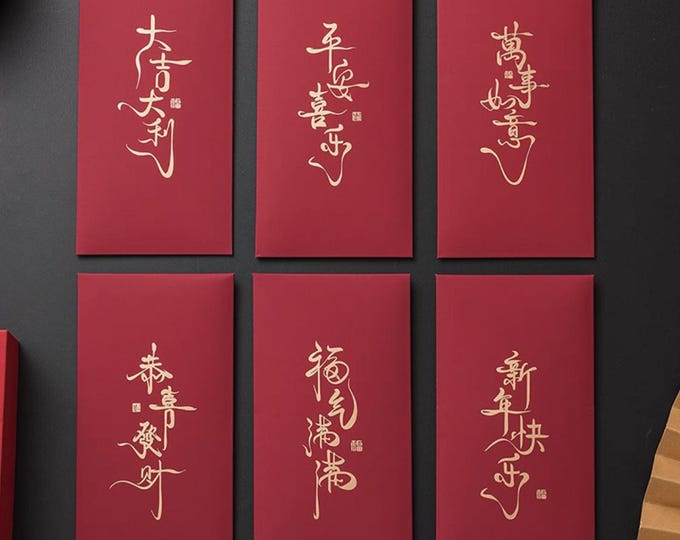 大吉大利
平安喜乐
萬事如意
恭喜發财
福气满满
新年快乐